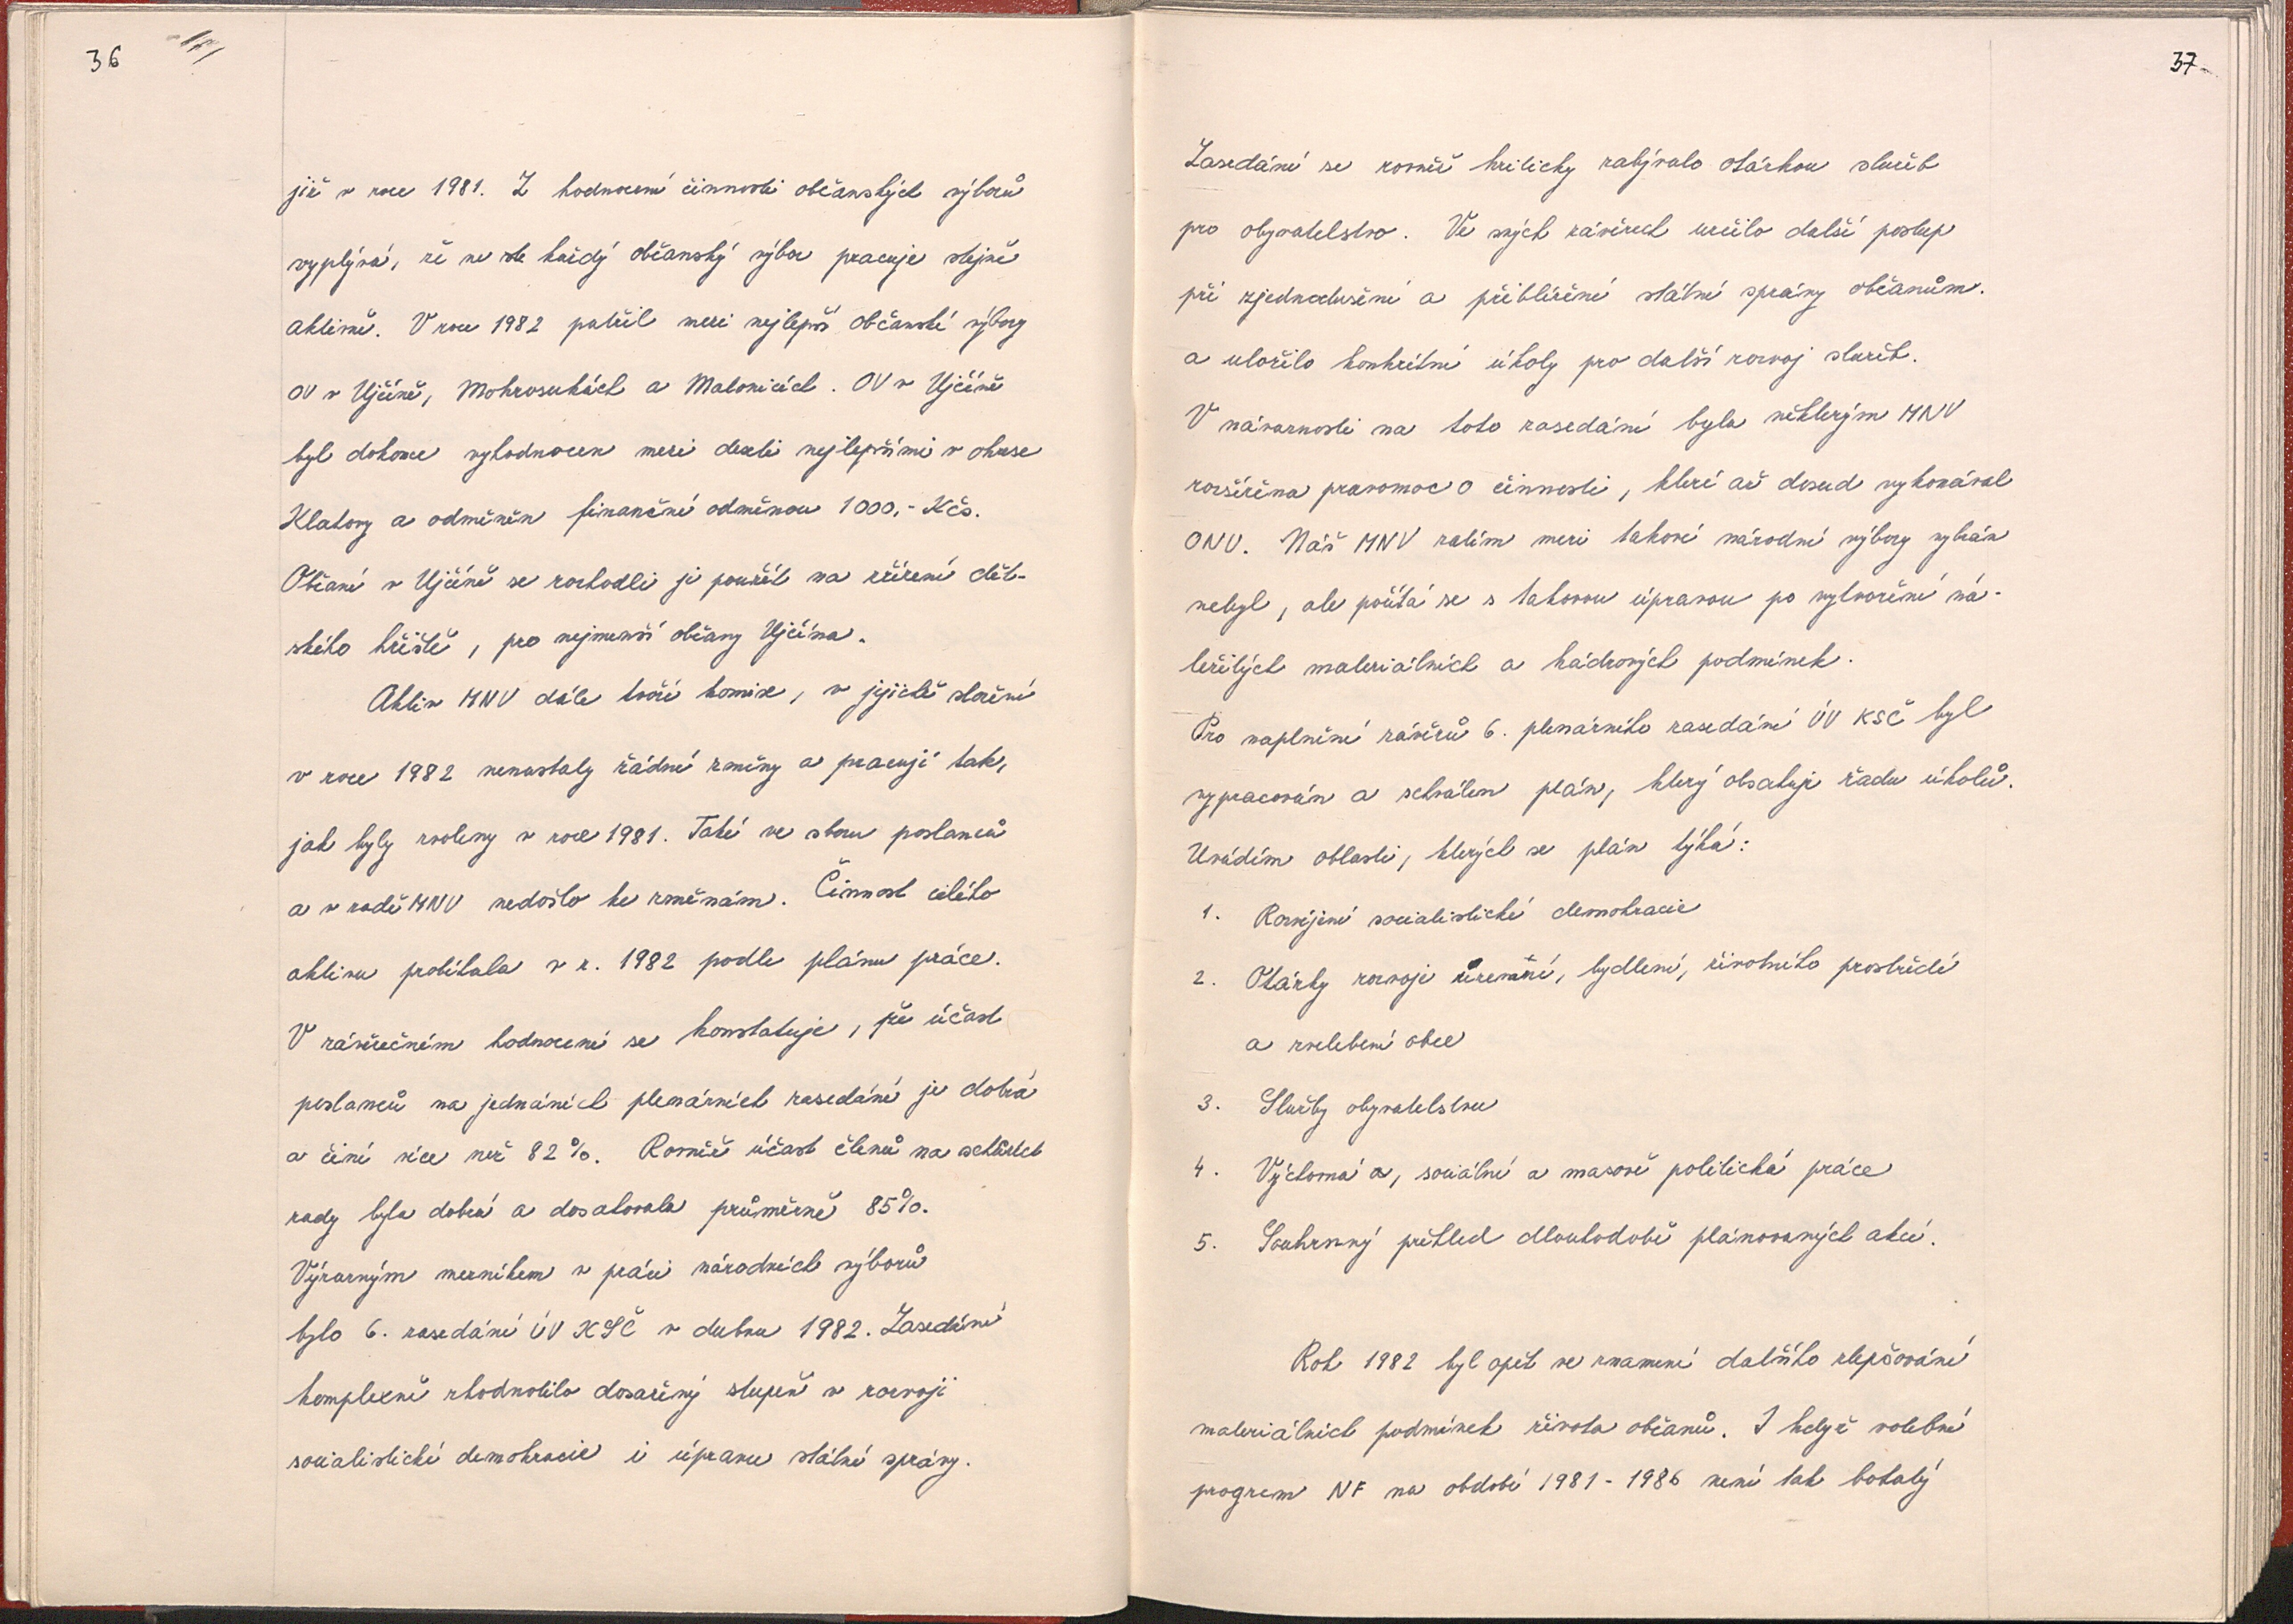 36
již v roce 1981. Z hodnocení činnosti občanských výborů
vyplývá, že ne každý občanský výbor pracuje stejně
aktivně. V roce 1982 patřil mezi nejlepší občanské výbory
OV v Ujčíně, Mokrosukách a Malonicích. OV v Ujčíně
byl dokonce vyhodnocen mezi deseti nejlepšími v okrese
Klatovy a odměněn finanční odměnou 1000,- Kčs.
Občané v Ujčíně se rozhodli ji použít na zřízení dět-
ského hřiště, pro nejmenší občany Ujčína.
Aktiv MNV dále tvoří komise, v jejichž složení
v roce 1982 nenastaly žádné změny a pracují tak,
jak byly zvoleny v roce 1981. Také ve sboru poslanců
a v radě MNV nedošlo ke změnám. Činnost celého
aktivu probíhala v r. 1982 podle plánu práce.
V závěrečném hodnocení se konstatuje, že účast
poslanců na jednáních plenárních zasedání je dobrá
a činí více než 82%. Rovněž účast členů na schůzích
rady byla dobrá a dosahovala průměrně 85%.
Výrazným mezníkem v práci národních výborů
bylo 6. zasedání ÚV KSČ v dubnu 1982. Zasedání
komplexně zhodnotilo dosažený stupeň v rozvoji
socialistické demokracie i úpravu státní správy.
37
Zasedání se rovněž kriticky zabývalo otázkou služeb
pro obyvatelstvo. Ve svých závěrech určilo další postup
při zjednodušení a přiblížení státní správy občanům.
a uložilo konkrétní úkoly pro další rozvoj služeb.
V návaznosti na toto zasedání byla některým MNV
rozšířena pravomoc o činnosti, které až dosud vykonával
ONV. Náš MNV zatím mezi takové národní výbory vybrán
nebyl, ale počítá se s takovou úpravou po vytvoření ná-
ležitých materiálních a kádrových podmínek.
Pro naplnění závěrů 6. plenárního zasedání ÚV KSČ byl
vypracován a schválen plán, který obsahuje řadu úkolů.
Uvádím oblasti, kterých se plán týká:
1. Rozvíjení socialistické demokracie
2. Otázky rozvoje území, bydlení, životního prostředí
a zvelebení obce
3. Služby obyvatelstvu
4. Výchovná a, sociální a masově politická práce
5. Souhrnný přehled dlouhodobě plánovaných akcí.
Rok 1982 byl opět ve znamení dalšího zlepšování
materiálních podmínek života občanů. I když volební
program NF na období 1981 - 1986 není tak bohatý